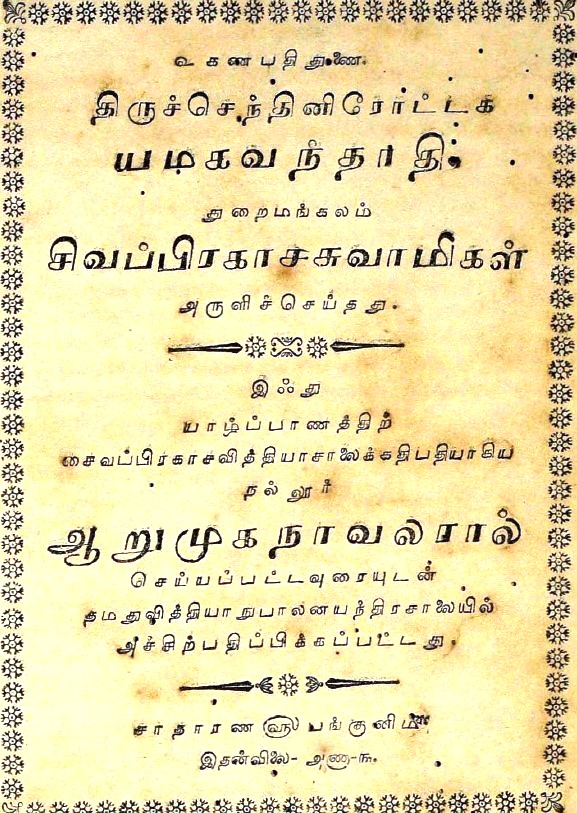 உ கணபதி துணை.
திருச்செந்தினிரோட்டக
யமகவந்தாதி.
துறைமங்கலம்
சிவப்பிரகாசசுவாமிகள்
அருளிச்செய்தது.
இஃது
யாழ்ப்பாணத்திற்
சைவப்பிரகாசவித்தியாசாலைக்கதிபதியாகிய
நல்லூர்
ஆறுமுகநாவலரால்
செய்யப்பட்டவுரையுடன்
தமதுவித்தியாநுபாலனயந்திரசாலையில்
அச்சிற்பதிப்பிக்கப்பட்டது.
சாதாரண ௵ பங்குனி ௴
இதன்விலை-